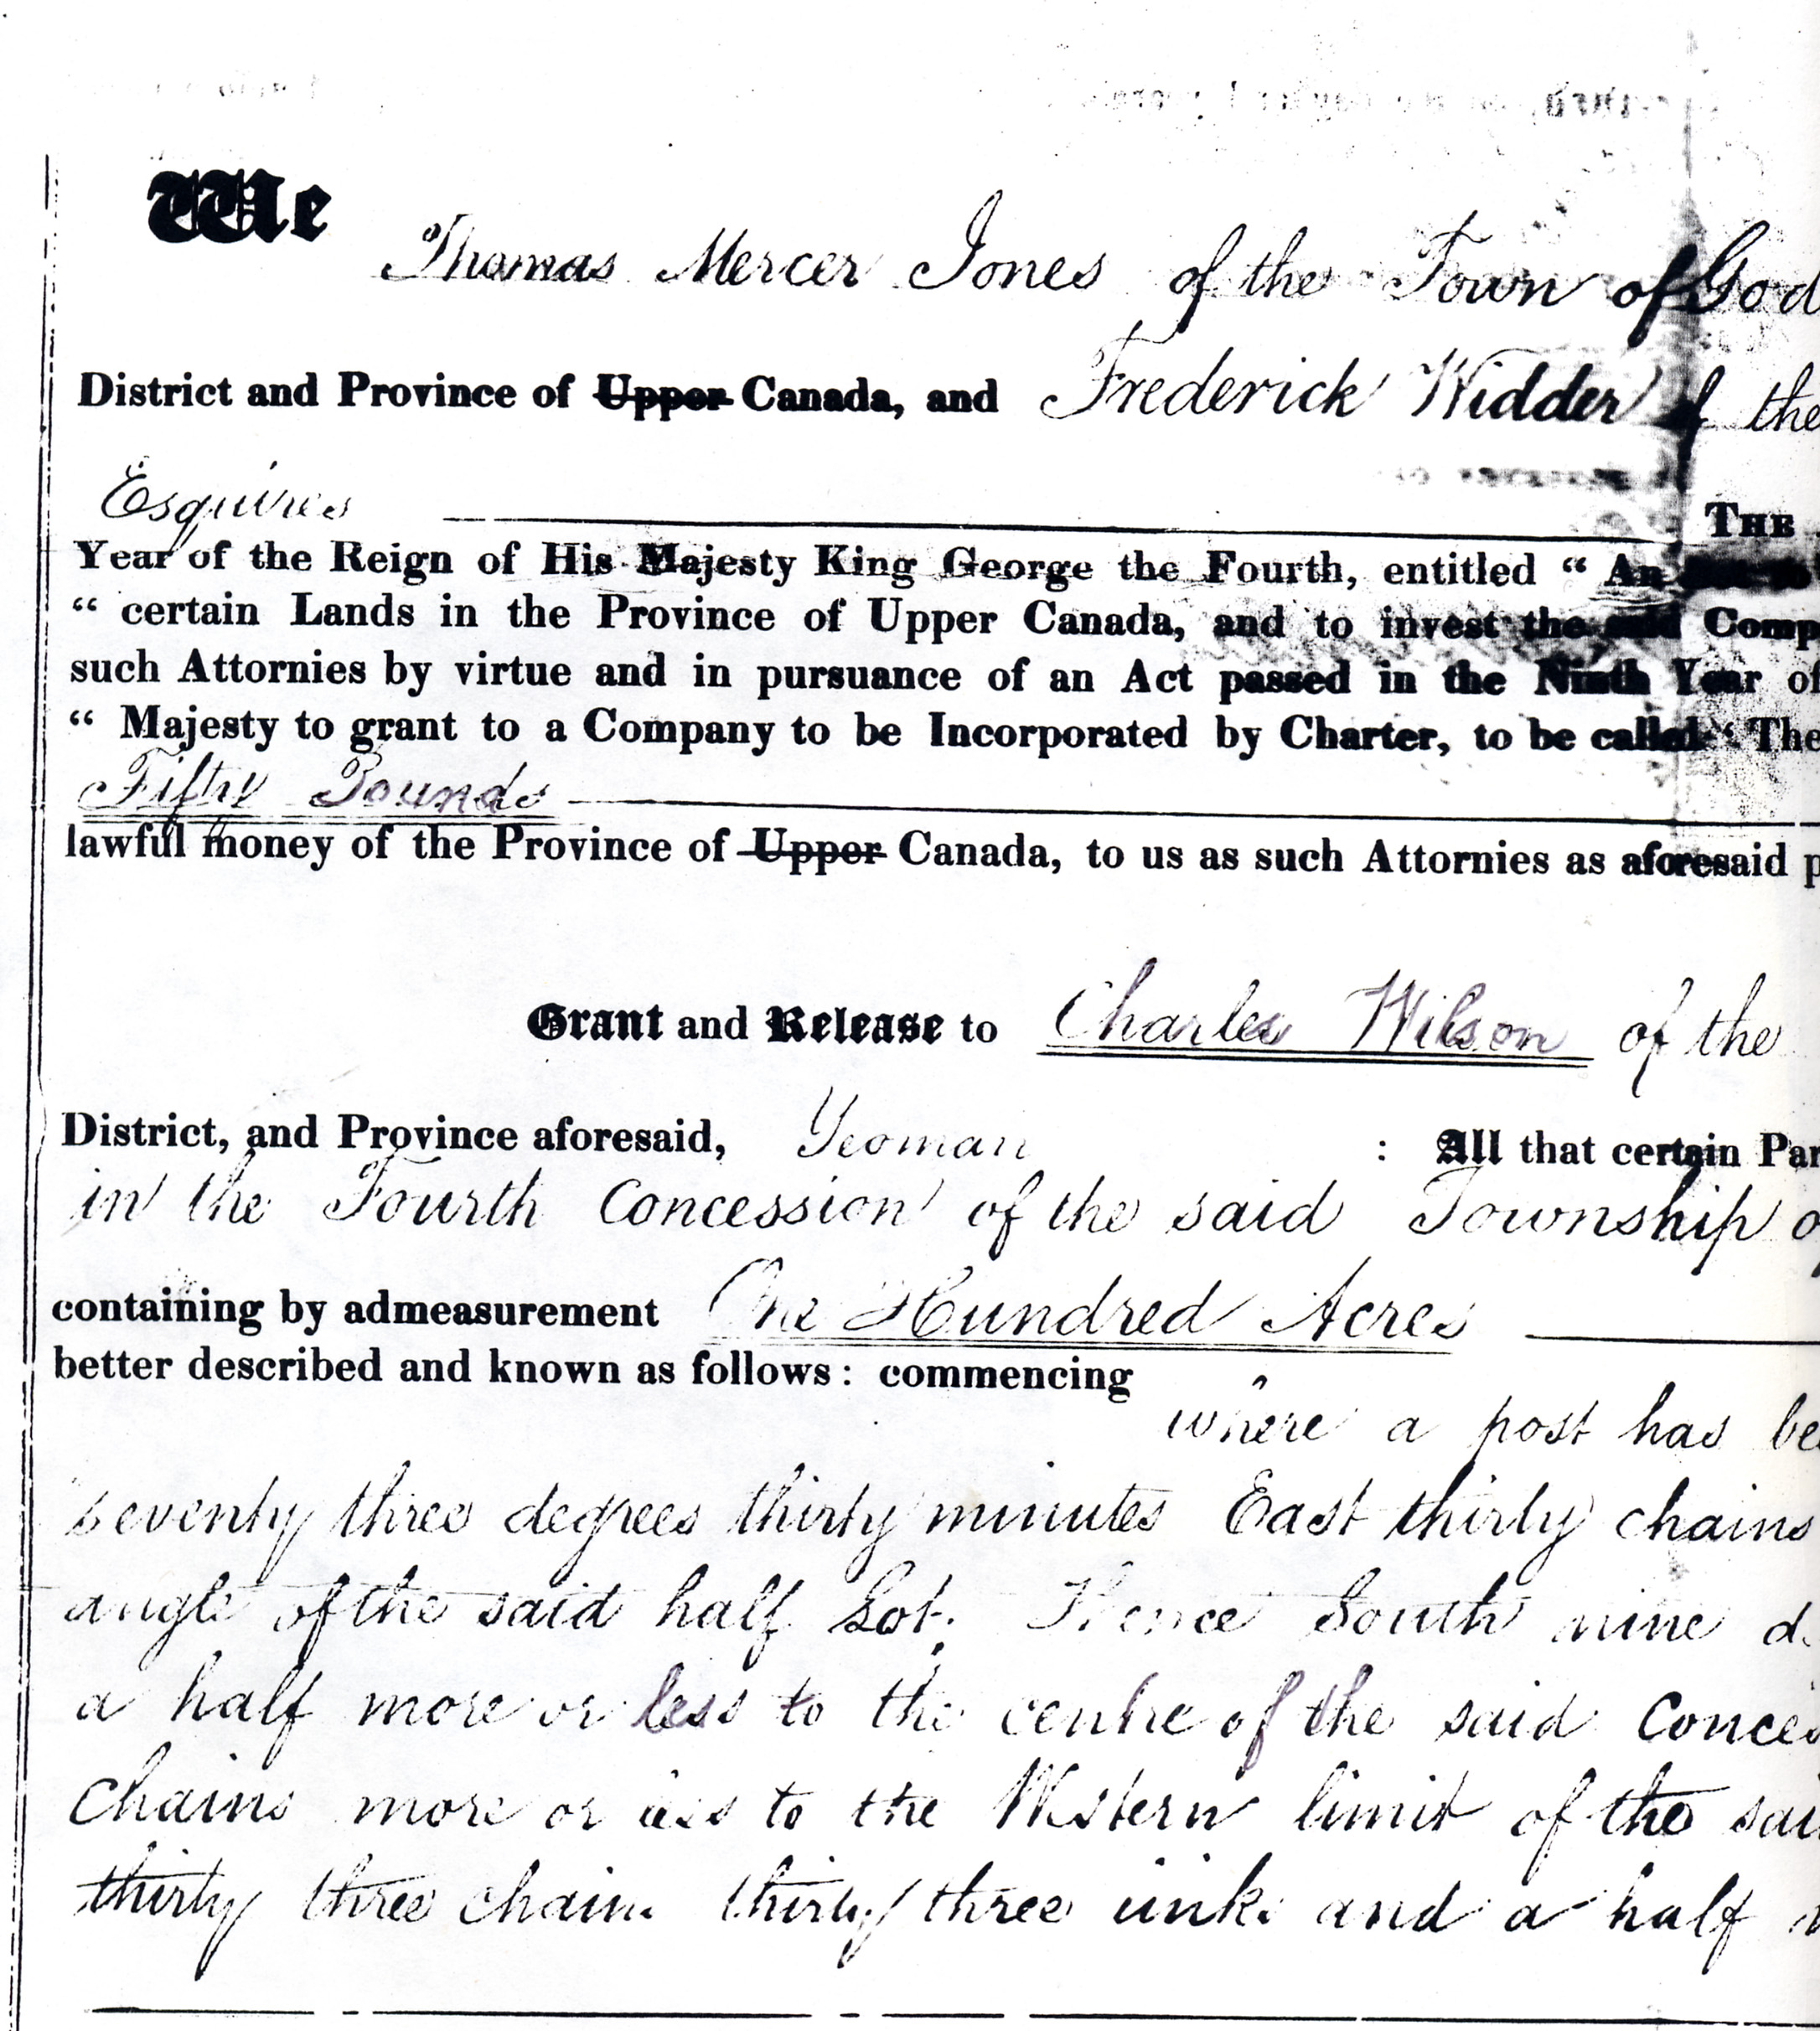 We
Thomas Mercer Jones of the Town of God
District and Province of Upper Canada, and Frederick Widder of the
Esquires THE
Year of the Reign of His Majesty King George the Fourth, entitled “ An
“ certain Lands in the Province of Upper Canada, and to invest the said Comp
such Attornies by virtue and in pursuance of an Act passed in the Ninth Year of
“ Majesty to grant to a Company to be Incorporated by Charter, to be called “ The
Fifty Pounds
lawful money of the Province of Upper Canada, to us as such Attornies as aforesaid p
Grant and Release to Charles Wilson of the
District, and Province aforesaid, Yeoman : All that certain Par
in the Fourth Concession of the said Township o
containing by admeasurement One Hundred Acres
better described and known as follows: commencing
where a post has be
seventy three degrees thirty minutes East thirty chains
angle of the said half Lot. Thence South nine d
a half more or less to the centre of the said Conces
chains more or less to the Western limit of the sai
thirty three chains thirty three links and a half